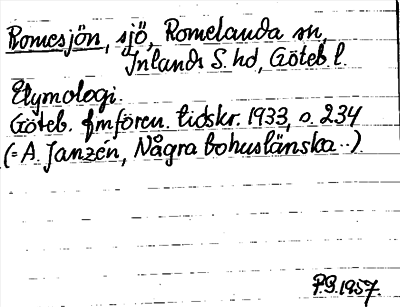 Romesjön, sjö, Romelanda sn,
Inlands S. hd, Göteb. l.
Etymologi.
Göteb. fmfören. tidskr. 1933, s. 234
(= A. Janzén, Några bohuslänska..).
P.G. 1957.